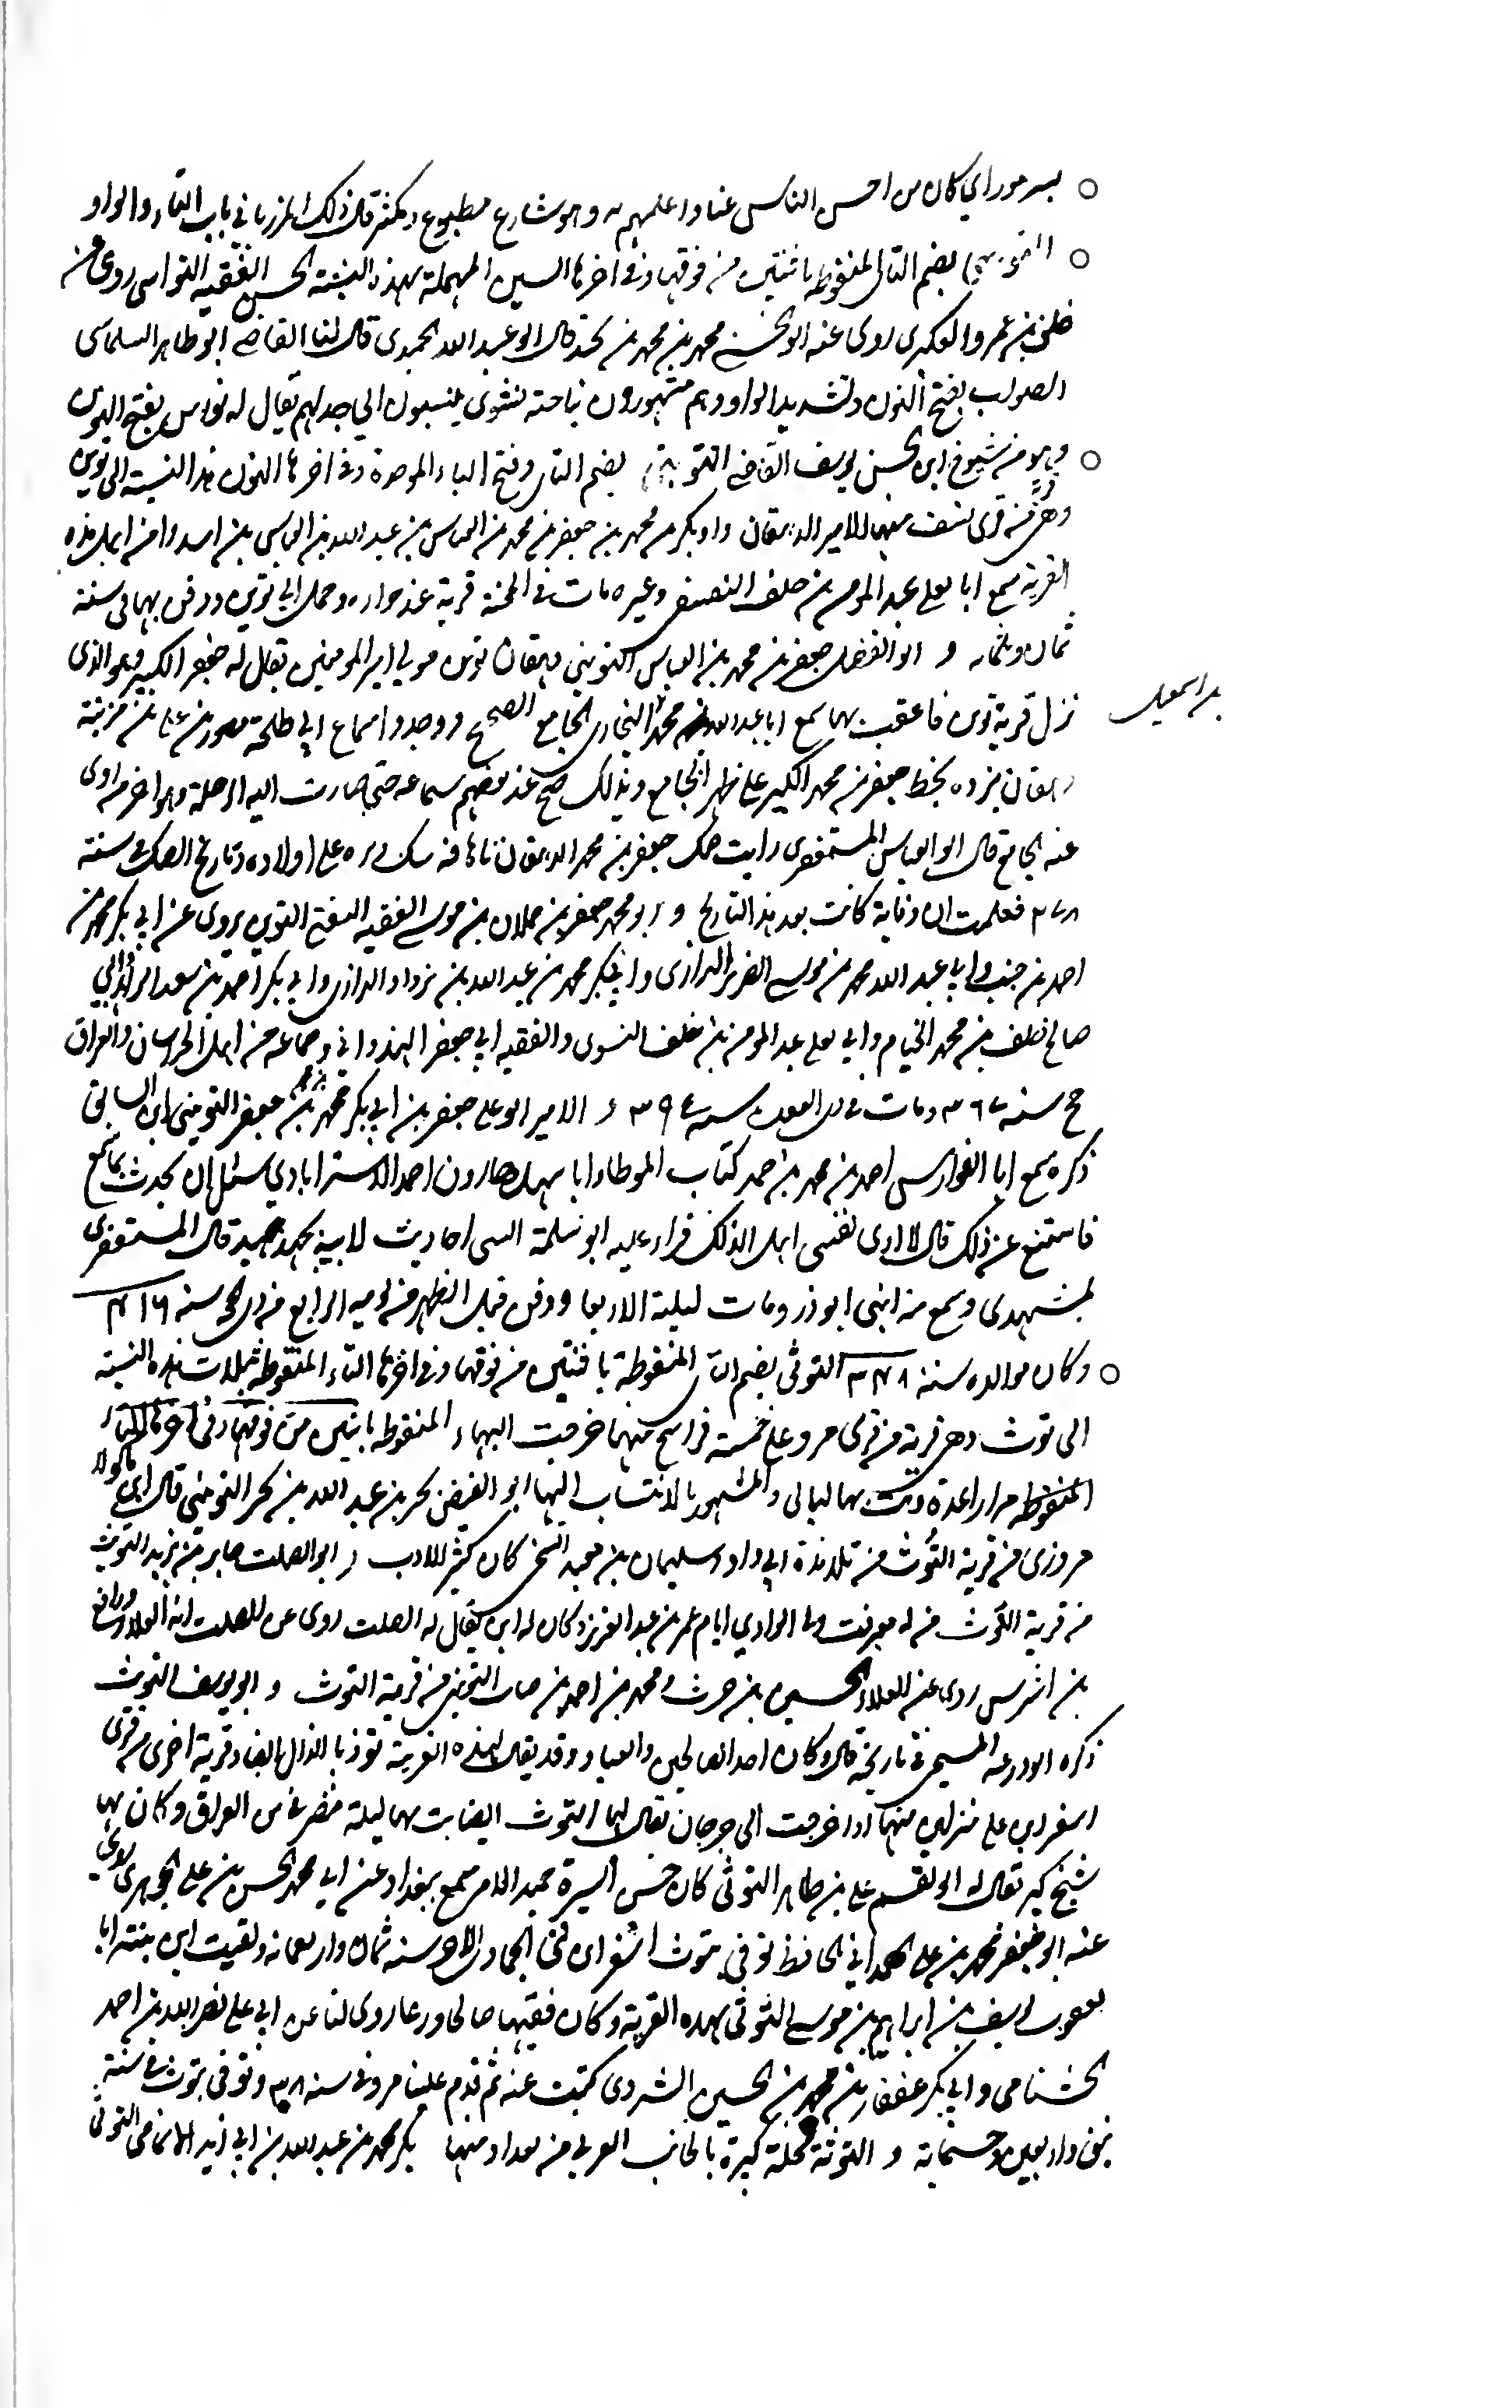 بسر مور اى كان من احسن الناس غنا واعلمهم به وهو شارع مطبوع ومكثر قال ذلك المرزبانى باب التاء والواو
بضم التاء المنقوطه باثنتين من فوقها وفى اخرها السين المهملة بهذه النسبة الحسن الفقيه التواسى روى عن
خلف بن عمرو العكبرى روى عنه ابو الحسن محمد بن محمد بن محمد قال ابو عبد الله الحميدى قال لنا القاضى ابو طاهر السلماسى
الصواب بفتح النون وتشديد الواو وهم مشهورون بناحية نشوى ينسبون الى جد لهم يقال له نواس بفتح النون
وهو من شيوخ ابى الحسن يوسف القاضى بضم التاء وفتح الباء الموحدة وفى اخرها النون هذا النسبة الى توبن
وهى قرية من قرى نسف منها الامير الدهقان ابو بكر محمد بن جعفر بن محمد بن العباس بن عبد الله بن العباس بن اسد وا من اهل هذه
القرية سمع ابا يعلى عبد المومن بن خلف النسفى وغيره مات فى قرية عند وحمل الى توبن ودفن بها فى سنة
ثمان و ابو الفضل جعفر بن محمد بن العباس التوبنى دهقان توبن مولى امير المومنين يقال له جعفر الكبير وهو الذى
نزل قرية توبن فاعقب بها سمع ابا عبد الله محمد البخارى الجامع الصحيح ووجدوا سماع ابى طلحة منصور بن على بن مزينة
بن اسمعيل
دهقان بزده بخط جعفر بن محمد الكبير على ظهر الجامع وبذلك صح عند بعضهم سماعه حتى صارت اليه الرحلة وهو اخر من روى
عنه الجامع قال ابو العباس المستغفرى رايت صك جعفر بن محمد الدهقان على اولاده وتاريخ الصك فى سنة
فعلمت ان وفاته كانت بعد هذا التاريخ و ابو محمد جعفر بن حملان بن موسى الفقيه التوبنى يروى عن ابى بكر محمد بن
احمد بن خنب وابى عبد الله محمد بن موسى الضرير الرازى وابى بكر محمد بن عبد الله بن يزداد الرازى وابى بكر احمد بن سعد
صالح خلف بن محمد الخيام وابى يعلى عبد المومن بن خلف النسوى والفقيه ابى جعفر الهندوانى وجماعة من اهل الخراسان والعراق
حج سنه ٣٦٧ ومات فى ذى القعدة سنه ٣٩٤ و الامير ابو على جعفر بن ابى بكر محمد بن جعفر التوبنى ابن السابق
ذكره سمع ابا الفوارس احمد بن محمد بن احمد كتاب الموطا وابا سهل هارون احمد الاستراباذى سئل ان يحدث بما سمع
فامتنع عن ذلك قال لا ارى نفسى اهل لذلك قراء عليه ابو سلمة النسفى احاديث لابنيه بجهد جهيد قال المستغفرى
بمشهدى وسمع منه ابنى ابو ذر ومات ليلة الاربعا ودفن قبل الظهر من يومه الرابع من ذى الحجه سنه ٤١٦
وكان مولده سنة ٣٤٨ التوثى بضم التاء المنقوطة باثنتين من فوقها وفى اخرها التاء المنقوطه بثلاث هذه النسبة
الى توث وهى قرية من قرى مرو على خمسة فراسخ منها خرجت اليها المنقوطه باثنتين من فوقها وفى اخرها الثاء
المنقوطه مرارا عدة وبت بها ليالى والمشهور بالانتساب اليها ابو الفيض بحر بن عبد الله بن بحر التوثى قال ابن ماكولا
مروزى من قرية التوث من تلامذة ابى داود سليمان بن معبد السنجى كان كثير الادب و ابو الصلت جابر بن يزيد التوثى
من قرية التوث من له معرفت ولى الوادى ايام عمر بن عبد العزيز وكان له ابن يقال له الصلت روى عن الصلت ابنه العلاء ورافع
بن اشرس روى عن العلاء الحسين بن حرث ومحمد بن احمد بن حبان التوثى من قرية التوث و ابو يوسف التوثى
ذكره ابو زرعه السنجى فى تاريخه قال وكان احد الصالحين والعباد وقد يقال لهذه القرية توذ بالذال ايضا وقرية اخرى من قرى
اسفراين على منزلين منها اذا خرجت الى جرجان يقال لها التوث ايضا بت بها ليلة منصرفى من العراق وكان بها
شيخ كبير يقال له ابو القسم على بن طاهر التوثى كان حسن السيرة حميد الامر سمع ببغداد عن ابى محمد الحسن بن على الجوهرى روى
عنه ابو جعفر محمد بن على الهمدانى الحافظ توفى بتوث اسفراين فى الجمادى الاخر سنه ثمان واربعمائه ولقيت ابن بنته ابا
يعقوب يوسف بن ابراهيم بن موسى التوثى بهذه القرية وكان فقيها صالحا ورعا روى لنا عن ابى على نصر الله بن احمد
الخشنامى وابى بكر عبد الغفار بن محمد بن الحسين الشيروى كتبت عنه ثم قدم علينا مرو فى سنه وتوفى بتوث فى سنة
نيف واربعين وخمسماية و التوثة محلة كبيرة بالجانب الغربى من بغداد منها بكر محمد بن عبد الله بن ابى زيد الانماطى التوثى